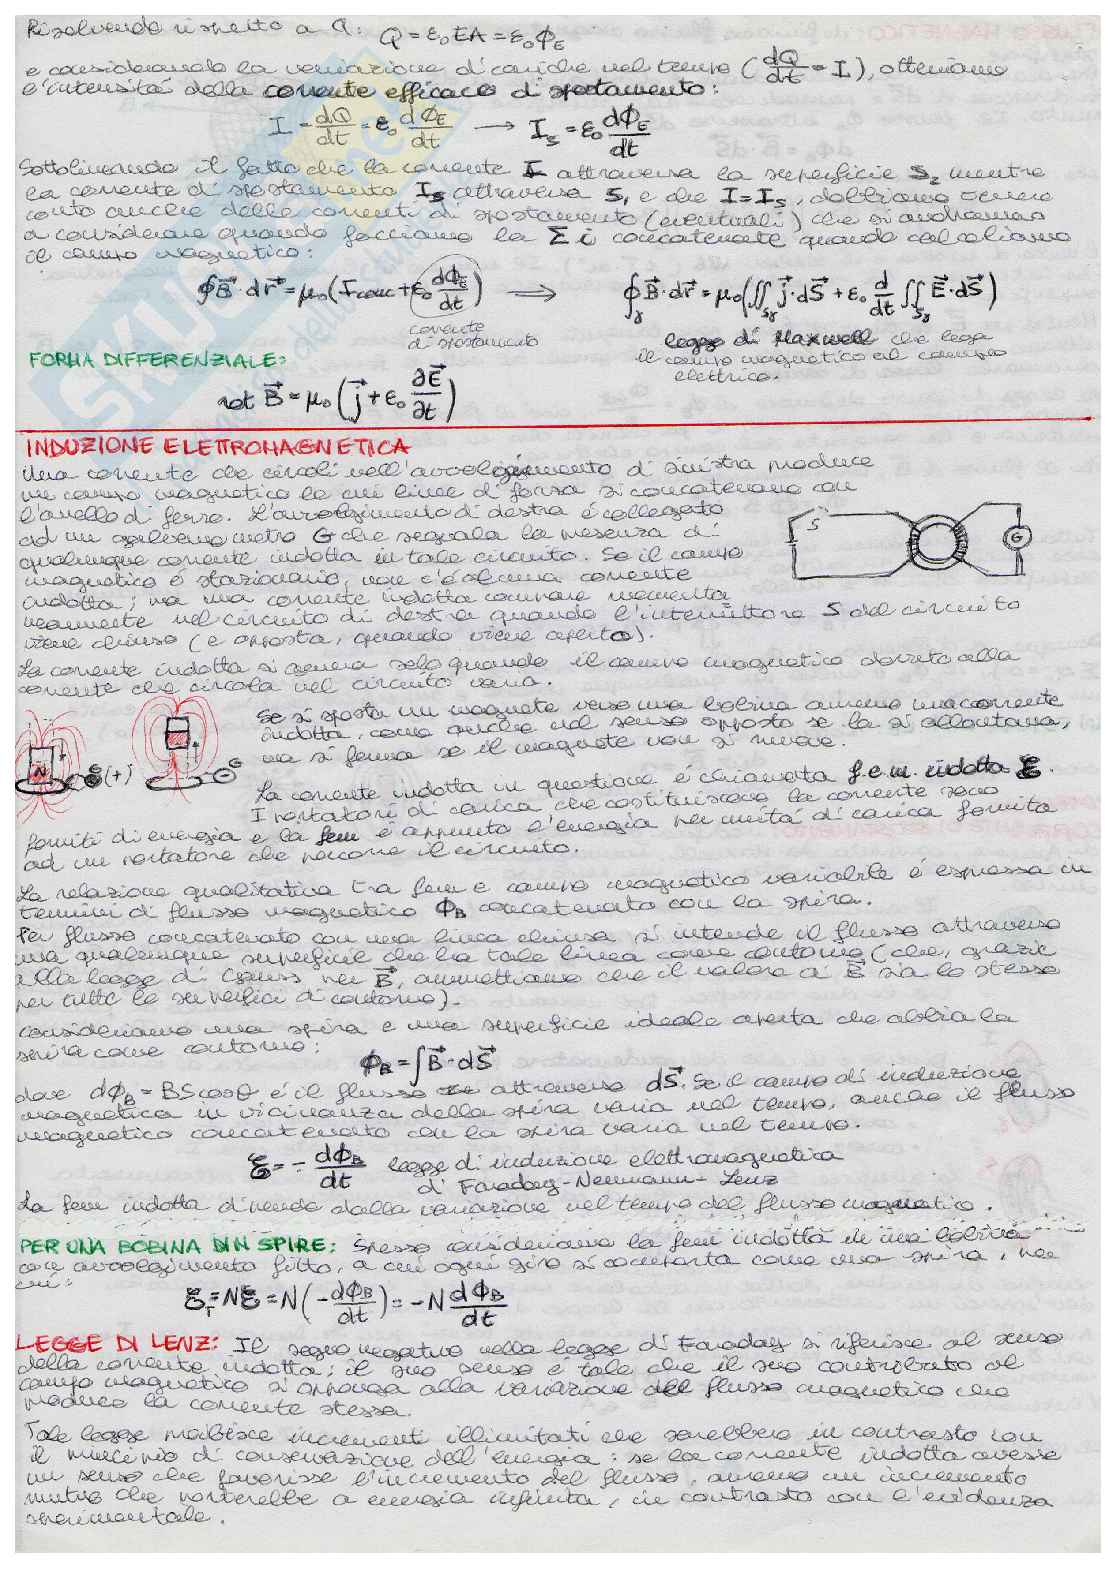 Risolvendo rispetto a Q: Q = ε₀EA = ε₀Φ_E
e considerando la variazione di cariche nel tempo (dQ/dt = I), otteniamo
l'intensità della corrente efficace di spostamento:
I = dQ/dt = ε₀ dΦ_E/dt → I_S = ε₀ dΦ_E/dt
Sottolineando il fatto che la corrente I attraversa la superficie S₂ mentre
la corrente di spostamento I_S attraversa S₁ e che I = I_S, dobbiamo tenere
conto anche delle correnti di spostamento (eventuali) che si andranno
a considerare quando facciamo la Σ i concatenate quando calcoliamo
il campo magnetico:
∮B⃗·dr⃗ = μ₀(I conc + ε₀ dΦ_E/dt) ⟹ ∮_γ B⃗·dr⃗ = μ₀(∬_Sγ j⃗·dS⃗ + ε₀ d/dt ∬_Sγ E⃗·dS⃗)
corrente di spostamento
legge di Maxwell che lega
il campo magnetico al campo
elettrico.
FORMA DIFFERENZIALE:
rot B⃗ = μ₀(j⃗ + ε₀ ∂E⃗/∂t)
INDUZIONE ELETTROMAGNETICA
Una corrente che circoli nell'avvolgimento di sinistra produce
un campo magnetico le cui linee di forza si concatenano con
l'anello di ferro. L'avvolgimento di destra è collegato
ad un galvanometro G che segnala la presenza di
qualunque corrente indotta in tale circuito. Se il campo
magnetico è stazionario, non c'è alcuna corrente
indotta; ma una corrente indotta compare momenta-
neamente nel circuito di destra quando l'interruttore S del circuito
viene chiuso (e opposta, quando viene aperto).
S
G
La corrente indotta si genera solo quando il campo magnetico dovuto alla
corrente che circola nel circuito varia.
N
G (+)
G
Se si sposta un magnete verso una bobina avremo una corrente
indotta, come anche nel senso opposto se la si allontana,
ma si ferma se il magnete non si muove.
La corrente indotta in questione è chiamata f.e.m. indotta ℰ.
I portatori di carica che costituiscono la corrente sono
forniti di energia e la fem è appunto l'energia per unità di carica fornita
ad un portatore che percorre il circuito.
La relazione qualitativa tra fem e campo magnetico variabile è espressa in
termini di flusso magnetico Φ_B concatenato con la spira.
Per flusso concatenato con una linea chiusa si intende il flusso attraverso
una qualunque superficie che ha tale linea come contorno (che, grazie
alla legge di Gauss per B⃗, ammettiamo che il valore di B⃗ sia lo stesso
per tutte le superfici di contorno).
Consideriamo una spira e una superficie ideale aperta che abbia la
spira come contorno:
Φ_B = ∫B⃗·dS⃗
dove dΦ_B = BScosθ è il flusso attraverso dS⃗. Se il campo di induzione
magnetica in vicinanza della spira varia nel tempo, anche il flusso
magnetico concatenato con la spira varia nel tempo.
ℰ = - dΦ_B/dt legge di induzione elettromagnetica
di Faraday-Neumann-Lenz
La fem indotta dipende dalla variazione nel tempo del flusso magnetico.
PER UNA BOBINA DI N SPIRE: Spesso consideriamo la fem indotta in una bobina
con avvolgimento fitto, a cui ogni giro si comporta come una spira, per
cui:
ℰ_T = Nℰ = N(-dΦ_B/dt) = -N dΦ_B/dt
LEGGE DI LENZ: Il segno negativo nella legge di Faraday si riferisce al senso
della corrente indotta; il suo senso è tale che il suo contributo al
campo magnetico si opponga alla variazione del flusso magnetico che
produce la corrente stessa.
Tale legge proibisce incrementi illimitati che sarebbero in contrasto con
il principio di conservazione dell'energia: se la corrente indotta avesse
un senso che favorisse l'incremento del flusso, avremo un incremento
mutuo che porterebbe a energia infinita, in contrasto con l'evidenza
sperimentale.